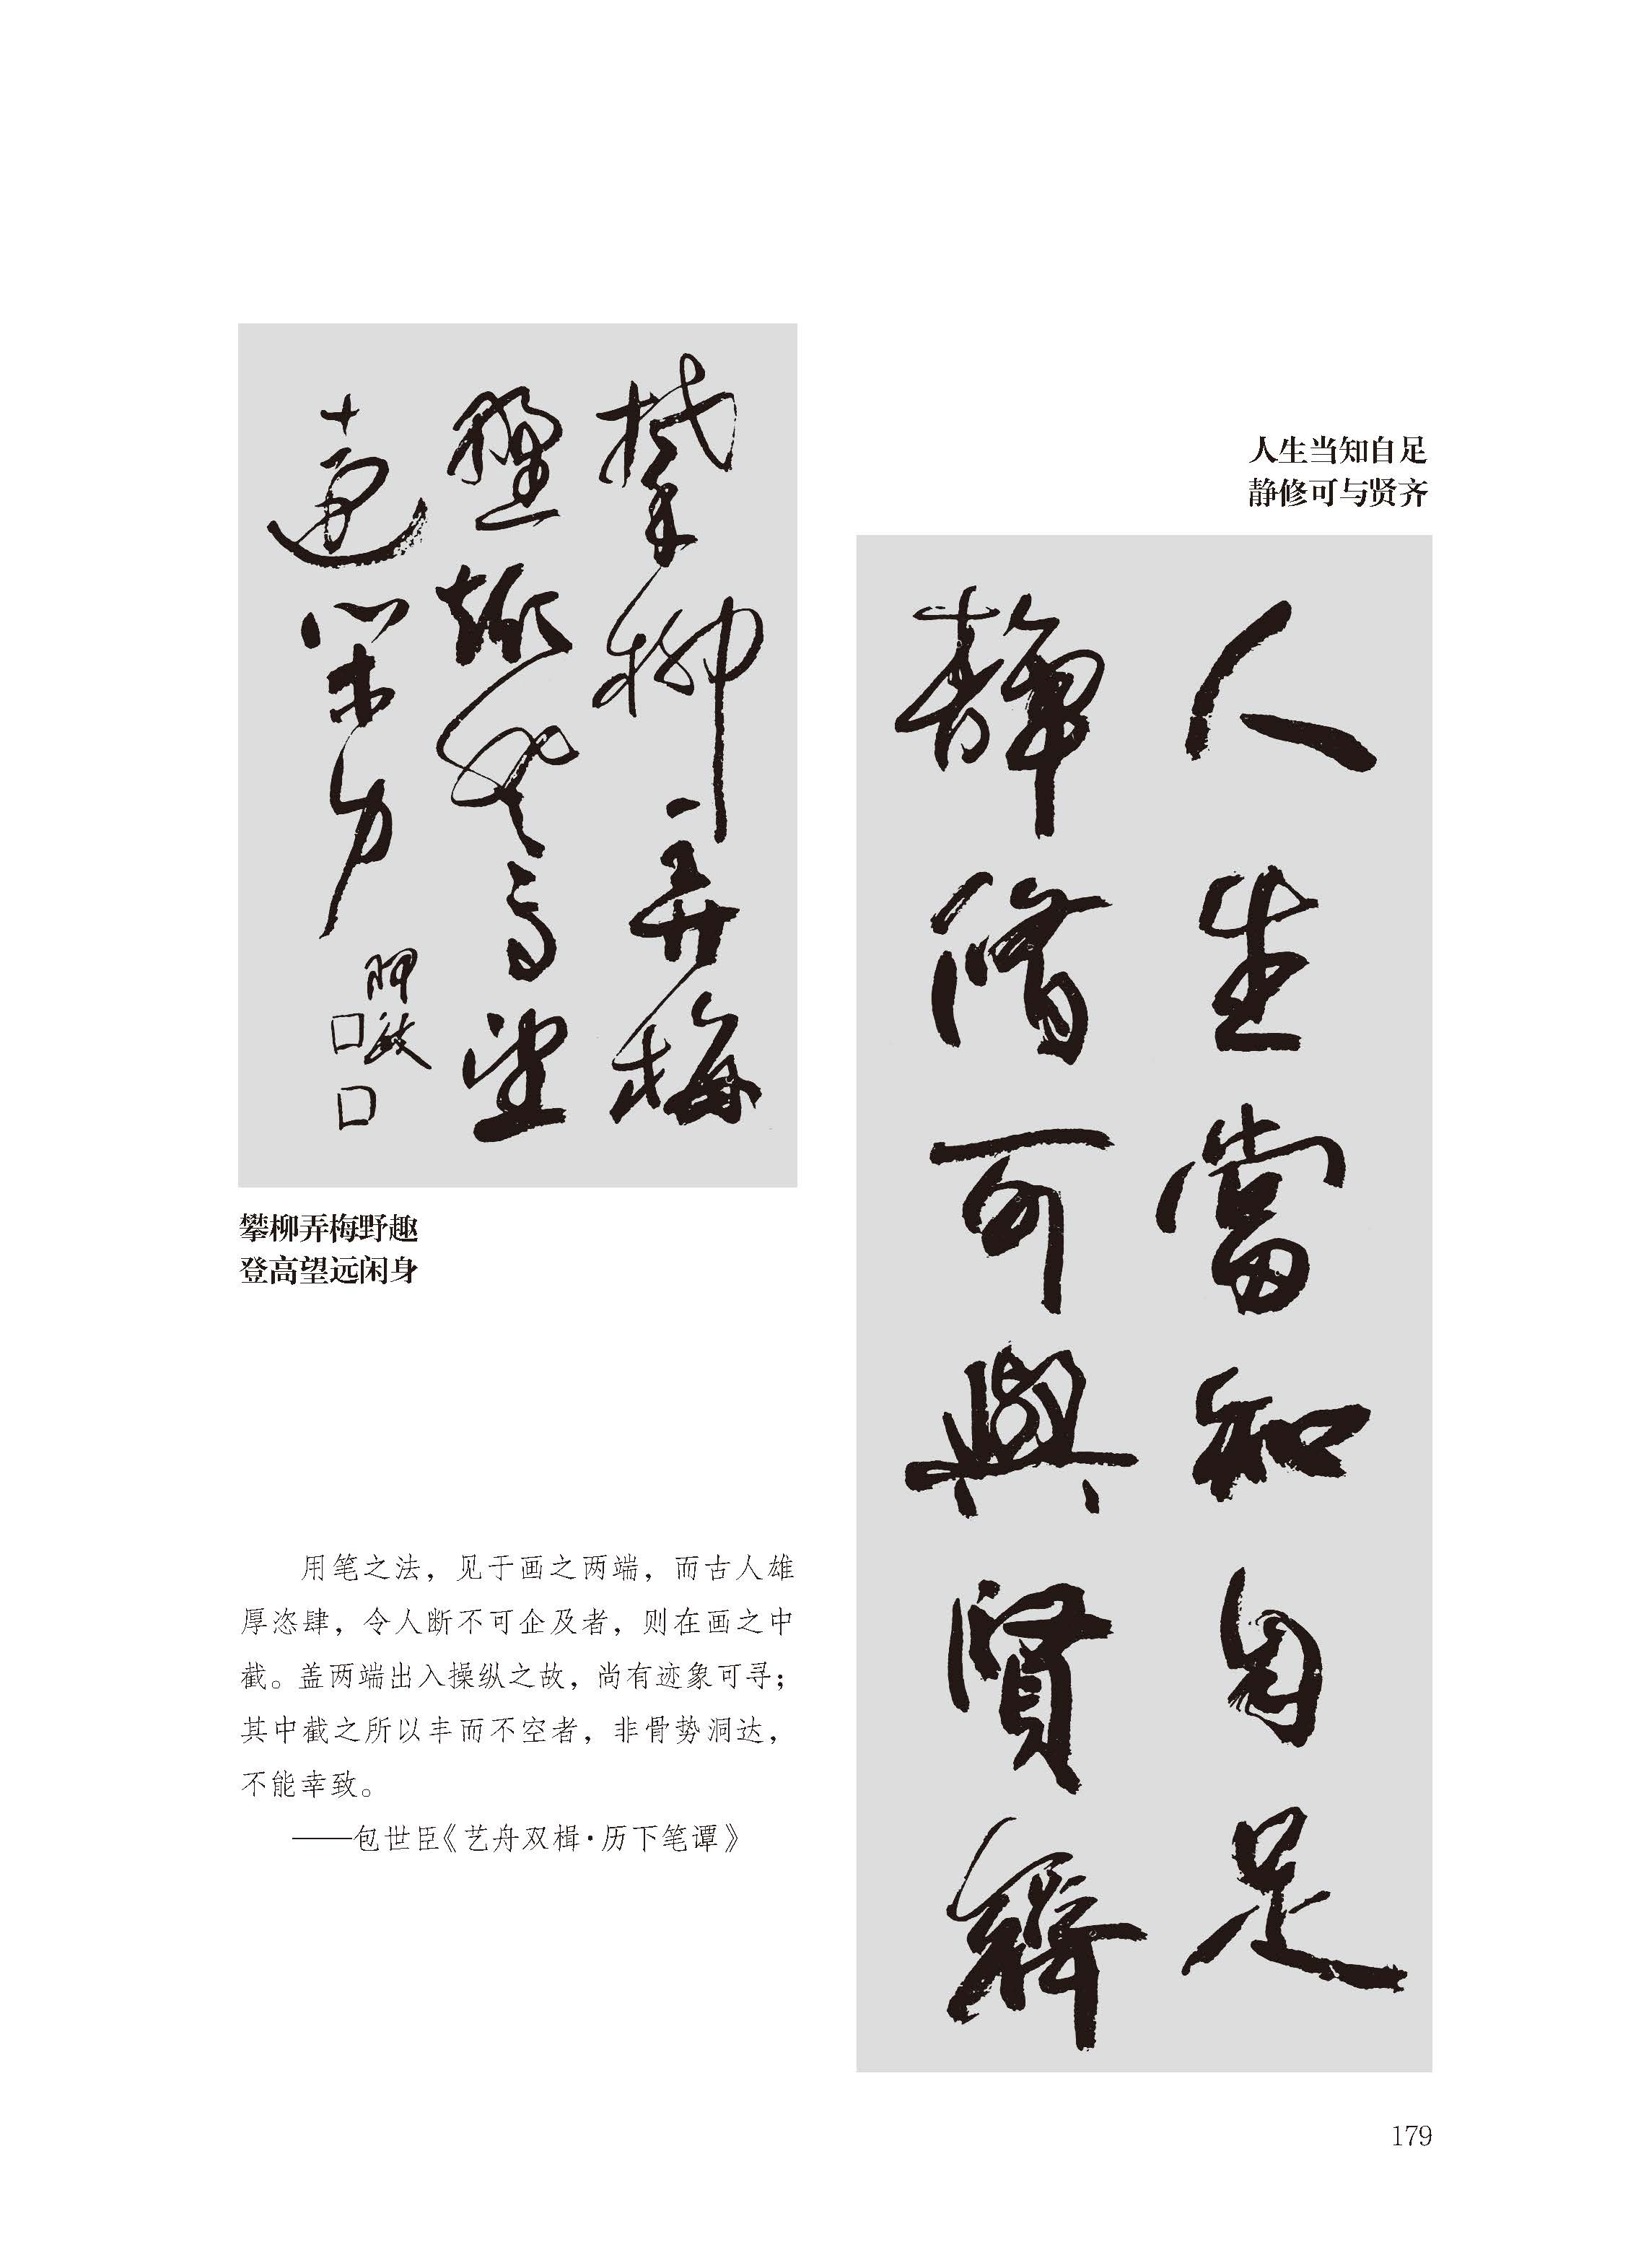 攀柳弄梅
野趣登高望
遠閑身
攀柳弄梅野趣
登高望远闲身
人生当知自足
静修可与贤齐
人生當知自足
靜脩可與賢齊
用笔之法，见于画之两端，而古人雄
厚恣肆，令人断不可企及者，则在画之中
截。盖两端出入操纵之故，尚有迹象可寻；
其中截之所以丰而不空者，非骨势洞达，
不能幸致。
——包世臣《艺舟双楫·历下笔谭》
179